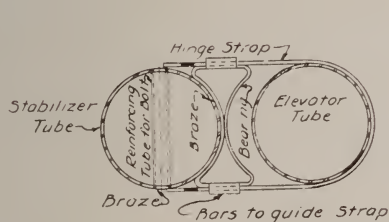 Hinge Strap
Stabilizer
Tube
Reinforcing
Tube for Bolt
Braze
Bearing
Elevator
Tube
Braze
Bars to guide Strap